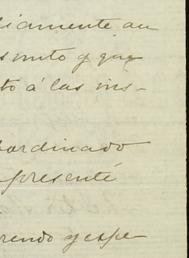 diamente au
smto y que
to á las ins-
ordinado
presenté
rendo y espe